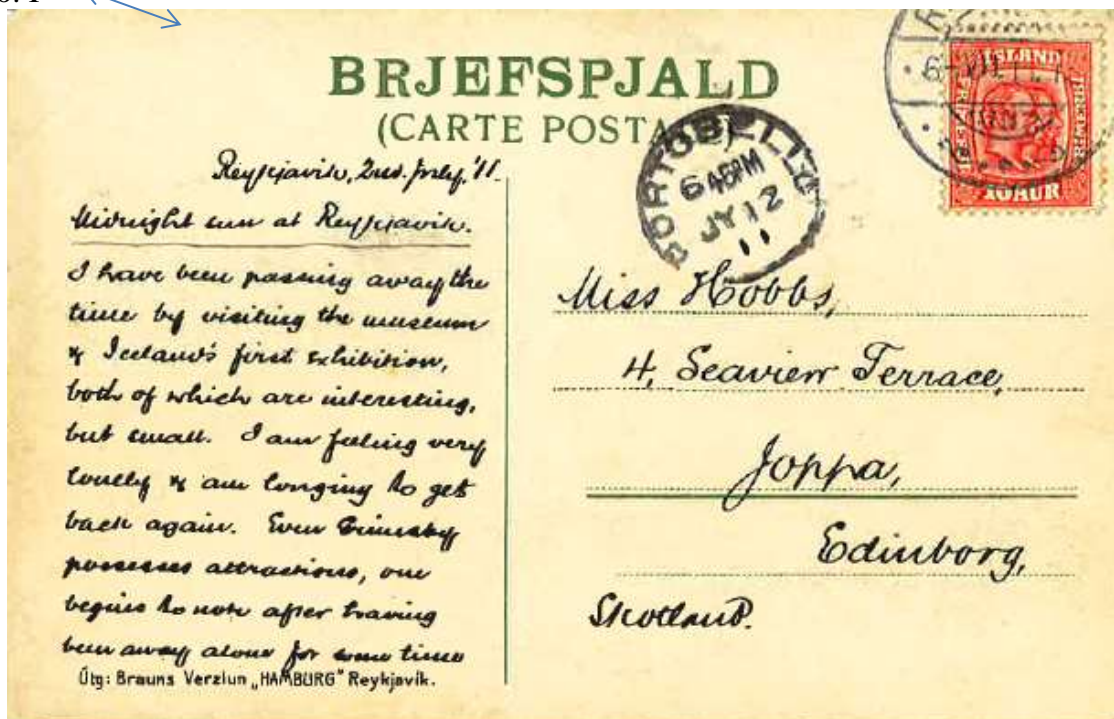 BRJEFSPJALD
(CARTE POSTALE)
Reykjavik, 2nd. July, '11.
Midnight sun at Reykjavik.
I have been passing away the
time by visiting the museum
& Iceland's first exhibition,
both of which are interesting,
but small. I am feeling very
lonely & am longing to get
back again. Even Grimsby
possesses attractions, one
begins to note after having
been away alone for some time
Útg: Brauns Verzlun „HAMBURG" Reykjavik.
PORTOBELLO
6 45PM
JY 12
11
ISLAND
10 AUR
Miss Hobbs,
4, Seaview Terrace,
Joppa,
Edinborg,
Skotland.